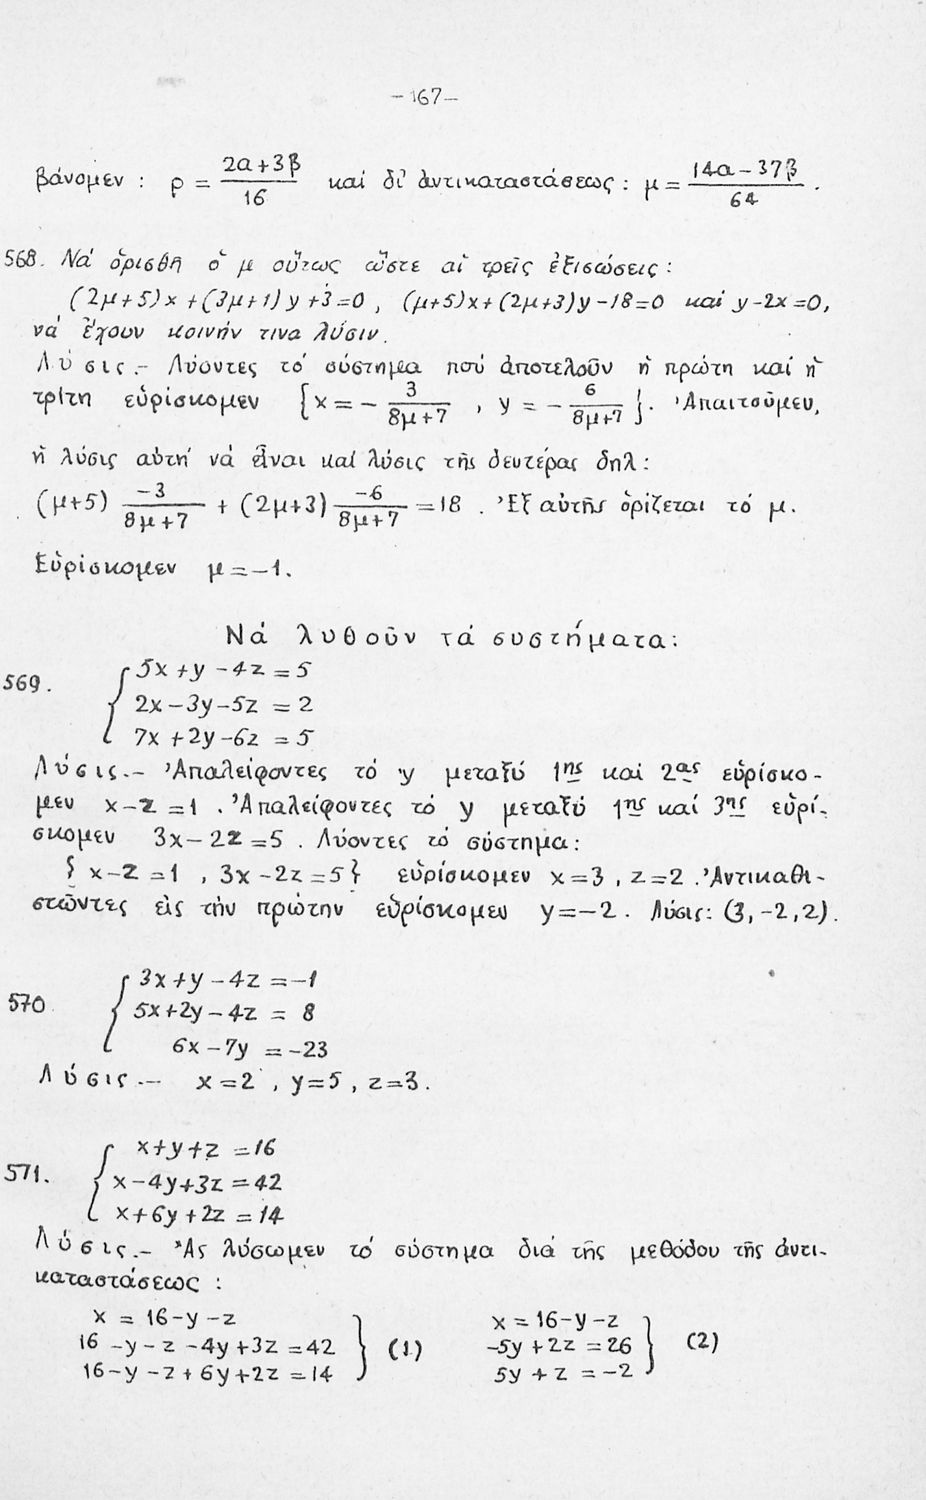 -167-
βάνομεν : ρ = (2α+3β)/16 καί δι' ἀντικαταστάσεως : μ = (14α-37β)/64 .
568. Νά ὁρισθῇ ὁ μ οὕτως ὥστε αἱ τρεῖς ἐξισώσεις :
(2μ+5)x + (3μ+1)y + 3 = 0 , (μ+5)x + (2μ+3)y - 18 = 0 καί y - 2x = 0,
νά ἔχουν κοινήν τινα λύσιν.
Λύσις.- Λύοντες τό σύστημα πού ἀποτελοῦν ἡ πρώτη καί ἡ
τρίτη εὑρίσκομεν {x = - 3/(8μ+7) , y = - 6/(8μ+7)}. Ἀπαιτοῦμεν,
ἡ λύσις αὐτή νά εἶναι καί λύσις τῆς δευτέρας δηλ :
(μ+5) -3/(8μ+7) + (2μ+3) -6/(8μ+7) = 18 . Ἐξ αὐτῆς ὁρίζεται τό μ.
Εὑρίσκομεν μ = -1.
Νά λυθοῦν τά συστήματα :
569. { 5x + y - 4z = 5
2x - 3y - 5z = 2
7x + 2y - 6z = 5
Λύσις.- Ἀπαλείφοντες τό y μεταξύ 1ης καί 2ας εὑρίσκο-
μεν x - z = 1 . Ἀπαλείφοντες τό y μεταξύ 1ης καί 3ης εὑρί-
σκομεν 3x - 2z = 5 . Λύοντες τό σύστημα :
{ x - z = 1 , 3x - 2z = 5 } εὑρίσκομεν x = 3 , z = 2 . Ἀντικαθι-
στῶντες εἰς τήν πρώτην εὑρίσκομεν y = -2 . Λύσις : (3, -2, 2) .
570 { 3x + y - 4z = -1
5x + 2y - 4z = 8
6x - 7y = -23
Λύσις.- x = 2 , y = 5 , z = 3 .
571. { x + y + z = 16
x - 4y + 3z = 42
x + 6y + 2z = 14
Λύσις.- Ἄς λύσωμεν τό σύστημα διά τῆς μεθόδου τῆς ἀντι-
καταστάσεως :
x = 16 - y - z x = 16 - y - z
16 - y - z - 4y + 3z = 42 } (1) -5y + 2z = 26 } (2)
16 - y - z + 6y + 2z = 14 5y + z = -2